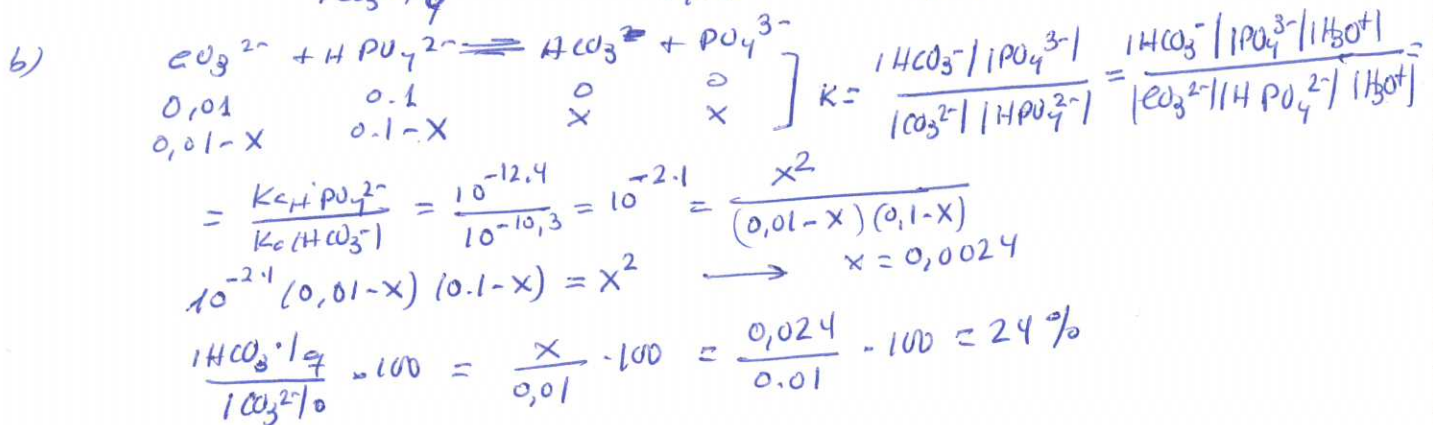 b) CO₃²⁻ + HPO₄²⁻ ⇌ HCO₃⁻ + PO₄³⁻
0,01 0.1 0 0
0,01-x 0.1-x x x ] K = |HCO₃⁻||PO₄³⁻| / |CO₃²⁻||HPO₄²⁻| = |HCO₃⁻||PO₄³⁻||H₃O⁺| / |CO₃²⁻||HPO₄²⁻||H₃O⁺| =
= Kc HPO₄²⁻ / Kc(HCO₃⁻) = 10^-12.4 / 10^-10,3 = 10^-2.1 = x² / (0,01-x)(0,1-x)
10^-2.1 (0,01-x) (0.1-x) = x² → x = 0,0024
|HCO₃⁻| / |CO₃²⁻|₀ · 100 = x / 0,01 · 100 = 0,024 / 0.01 · 100 = 24 %